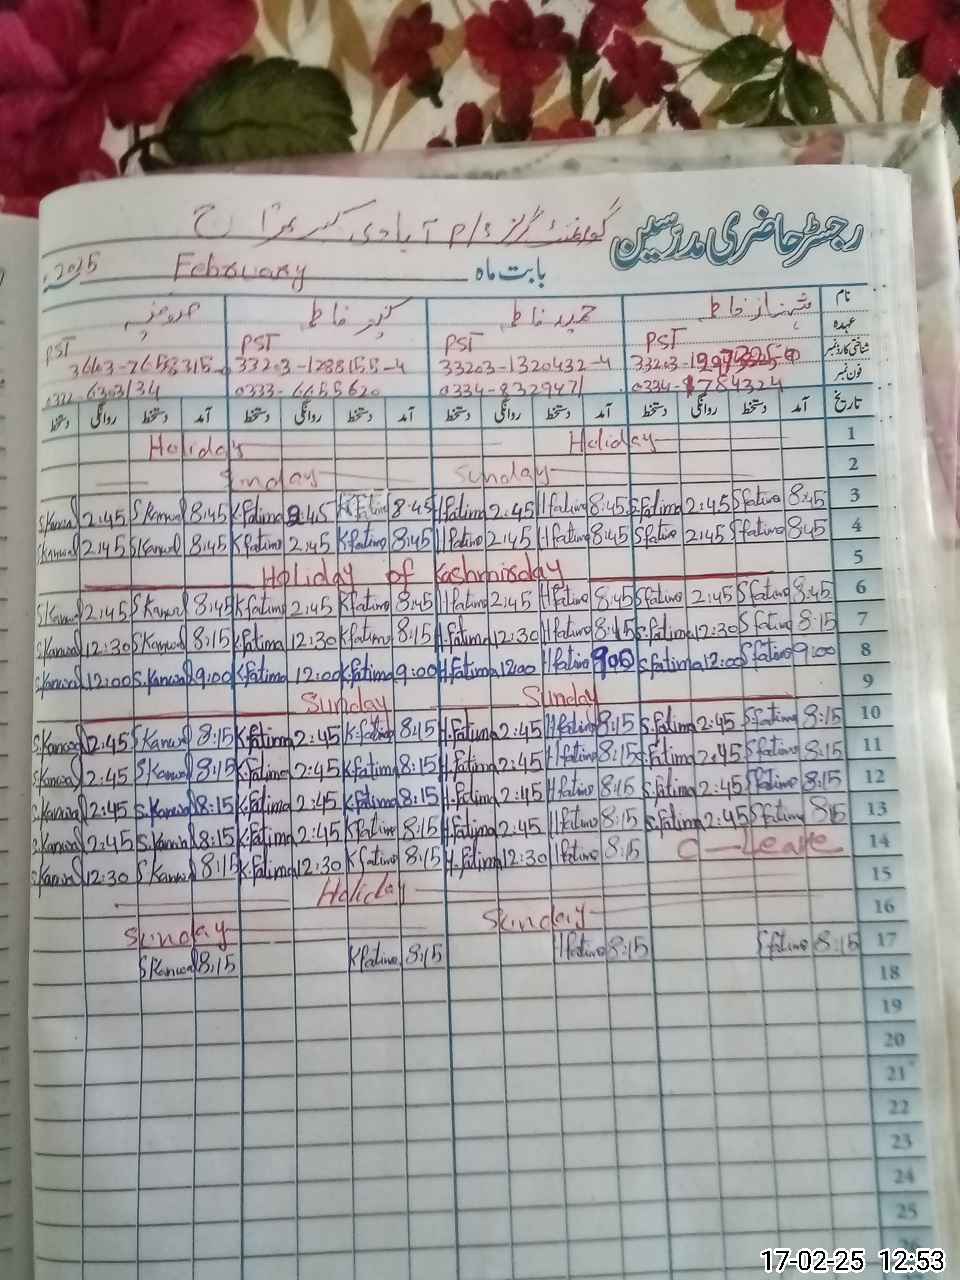 رجسٹر حاضری مدرسین گورنمنٹ گرلز P/S آبادی
بابت ماہ February 2025
نام شہناز فاطمہ حمیدہ فاطمہ کنیز فاطمہ
عہدہ PST PST PST PST
شناختی کارڈ نمبر 33203-1320432-4 33203-1288155-4
فون نمبر 0334-8329471 0333-6655620
تاریخ آمد دستخط روانگی دستخط آمد دستخط روانگی دستخط آمد دستخط روانگی دستخط آمد دستخط روانگی دستخط
1 Holiday Holiday
2 Sunday Sunday
3 8:45 S fatima 2:45 S.fatima 8:45 H fatima 2:45 H fatima 8:45 K Fatima 2:45 K.fatima 8:45 S Kanwal 2:45 S.Kanwal
4 8:45 S fatima 2:45 S fatima 8:45 H fatima 2:45 H fatima 8:45 K fatima 2:45 K fatima 8:45 S Kanwal 2:45 S Kanwal
5 Holiday of Kashmirday
6 8:45 S fatima 2:45 S fatima 8:45 H fatima 2:45 H fatima 8:45 K fatima 2:45 K fatima 8:45 S Kanwal 2:45 S Kanwal
7 8:15 S fatima 12:30 S.fatima 8:45 H fatima 12:30 H.fatima 8:15 K fatima 12:30 K.fatima 8:15 S Kanwal 12:30 S.Kanwal
8 9:00 S fatima 12:00 S fatima 900 H fatima 1200 H.fatima 9:00 K.fatima 12:00 K.fatima 9:00 S.Kanwal 12:00 S.Kanwal
9 Sunday Sunday
10 8:15 S.fatima 2:45 S.fatima 8:15 H fatima 2:45 H.fatima 8:15 K.fatima 2:45 K.fatima 8:15 S Kanwal 2:45 S.Kanwal
11 8:15 S fatima 2:45 S.fatima 8:15 H fatima 2:45 H.fatima 8:15 K.fatima 2:45 K.fatima 8:15 S Kanwal 2:45 S.Kanwal
12 8:15 S fatima 2:45 S.fatima 8:15 H fatima 2:45 H.fatima 8:15 K.fatima 2:45 K.fatima 8:15 S.Kanwal 2:45 S.Kanwal
13 8:15 S fatima 2:45 S.fatima 8:15 H fatima 2:45 H.fatima 8:15 K fatima 2:45 K.fatima 8:15 S.Kanwal 2:45 S.Kanwal
14 C-Leave 8:15 H fatima 12:30 H.Fatima 8:15 K fatima 12:30 K.fatima 8:15 S Kanwal 12:30 S.Kanwal
15 Holiday
16 Sunday Sunday
17 8:15 S fatima 8:15 H fatima 8:15 K fatima 8:15 S Kanwal
18
19
20
21
22
23
24
25
26
17-02-25 12:53